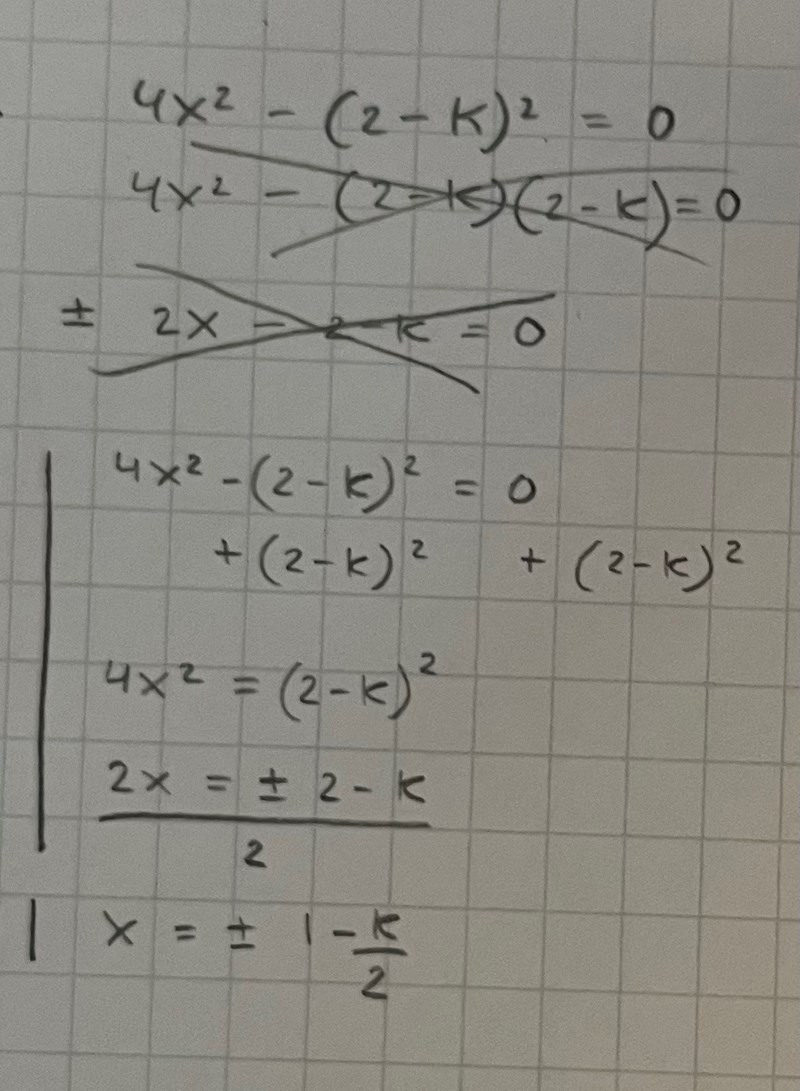 4x² - (2 - k)² = 0
4x² - (2 - k)(2 - k) = 0
± 2x - 2 - k = 0
4x² - (2 - k)² = 0
+ (2 - k)² + (2 - k)²
4x² = (2 - k)²
2x = ± 2 - k
2
x = ± 1 - k/2